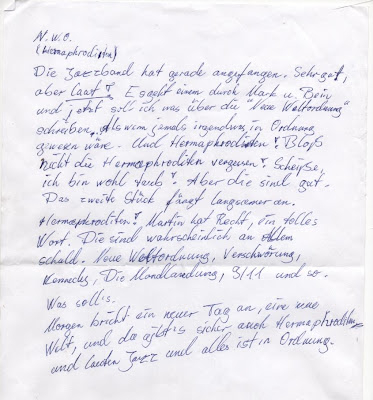 N.W.O.
(Hermaphroditen)
Die Jazzband hat gerade angefangen. Sehr gut,
aber laut! Es geht einem durch Mark u. Bein
und jetzt soll ich was über die "Neue Weltordnung"
schreiben. Als wenn jemals irgendwas in Ordnung
gewesen wäre. Und Hermaphroditen! Bloß
nicht die Hermaphroditen vergessen! Scheiße,
ich bin wohl taub! Aber die sind gut.
Das zweite Stück fängt langsamer an.
Hermaphroditen! Martin hat Recht, ein tolles
Wort. Die sind wahrscheinlich an Allem
schuld. Neue Weltordnung, Verschwörung,
Kennedy, Die Mondlandung, 9/11 und so.
Was soll's.
Morgen bricht ein neuer Tag an, eine neue
Welt, und da gibt's sicher auch Hermaphroditen
und lauten Jazz und alles ist in Ordnung.